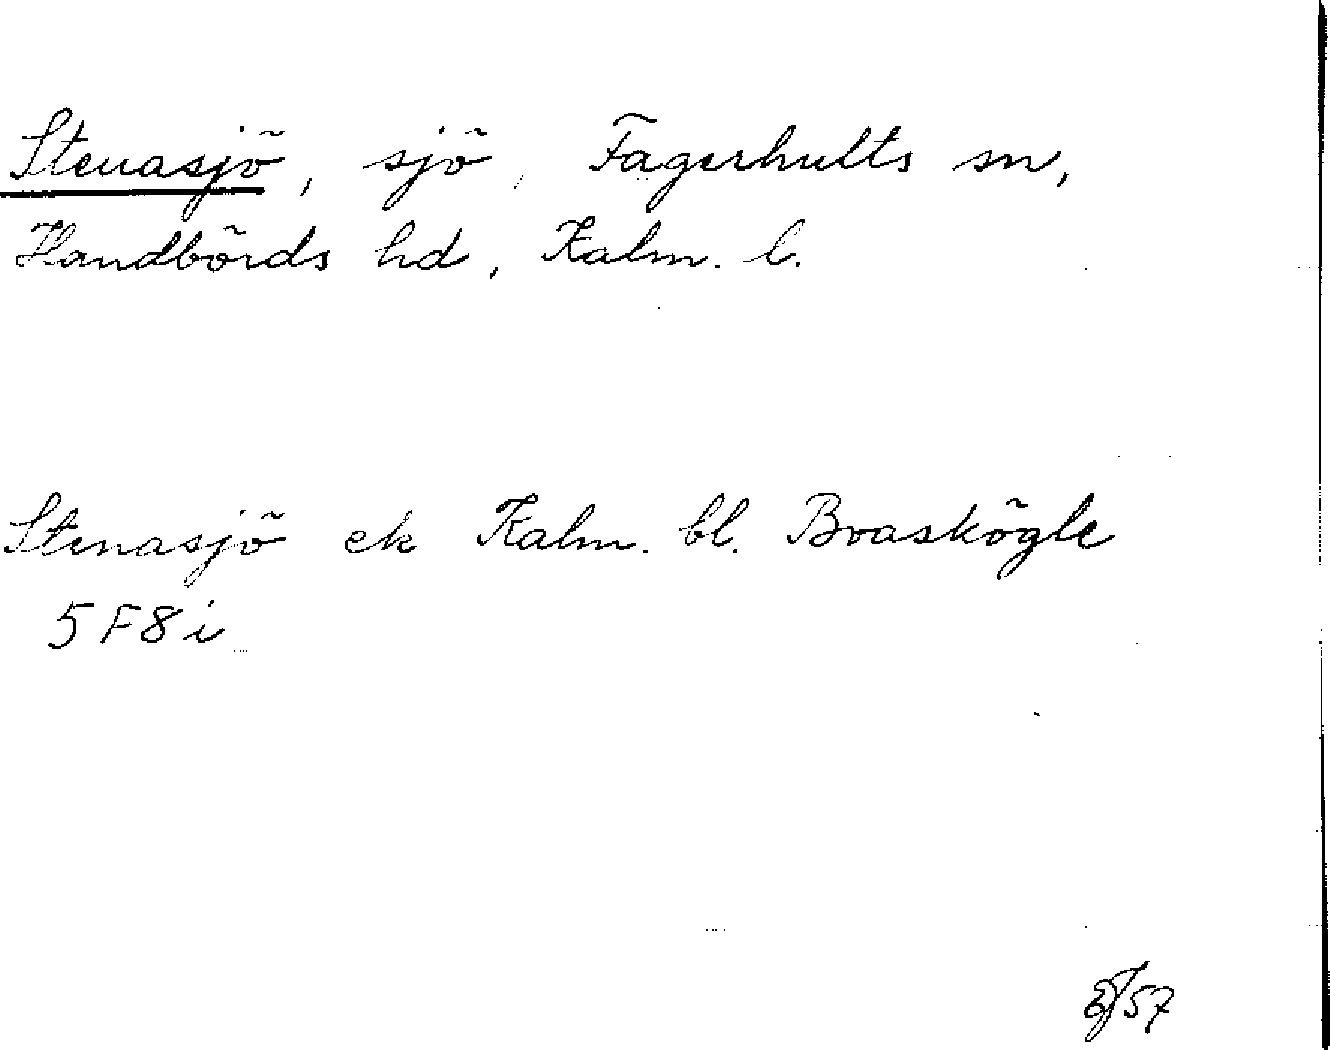 Stenasjö, sjö, Fagerhults sn,
Handbörds hd, Kalm. l.
Stenasjö ek Kalm. bl. Boaskögle
5F8i
57